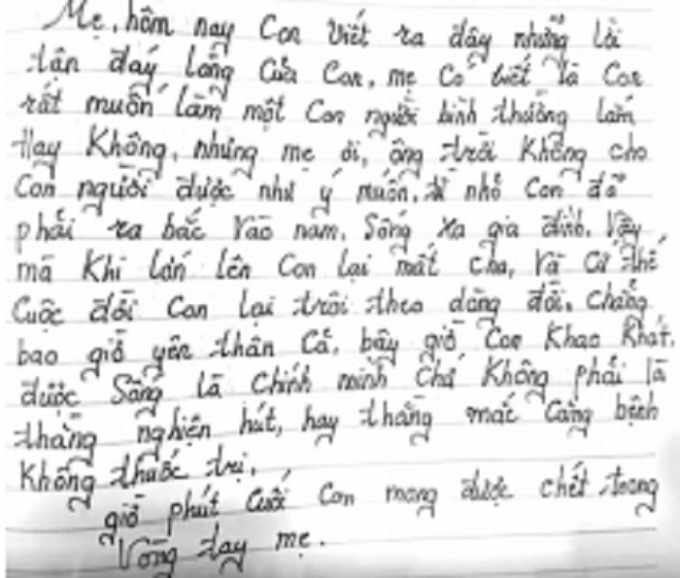 Mẹ, hôm nay Con viết ra đây những lời
tận đáy lòng Của Con, mẹ Có biết là Con
rất muốn làm một Con người bình thường lắm
Hay Không, nhưng mẹ ơi, ông trời Không cho
Con người được như ý muốn, từ nhỏ Con đã
phải ra bắc vào nam, Sống xa gia đình, Vậy
mà Khi lớn lên Con lại mất cha, và Cứ thế
Cuộc đời Con lại trôi theo dòng đời, chẳng
bao giờ yên thân Cả, bây giờ Con Khao Khát,
được Sống là Chính mình Chứ Không phải là
thằng nghiện hút, hay thằng mắc Căng bệnh
Không thuốc trị.
giờ phút Cuối Con mong được chết trong
Vòng tay mẹ.